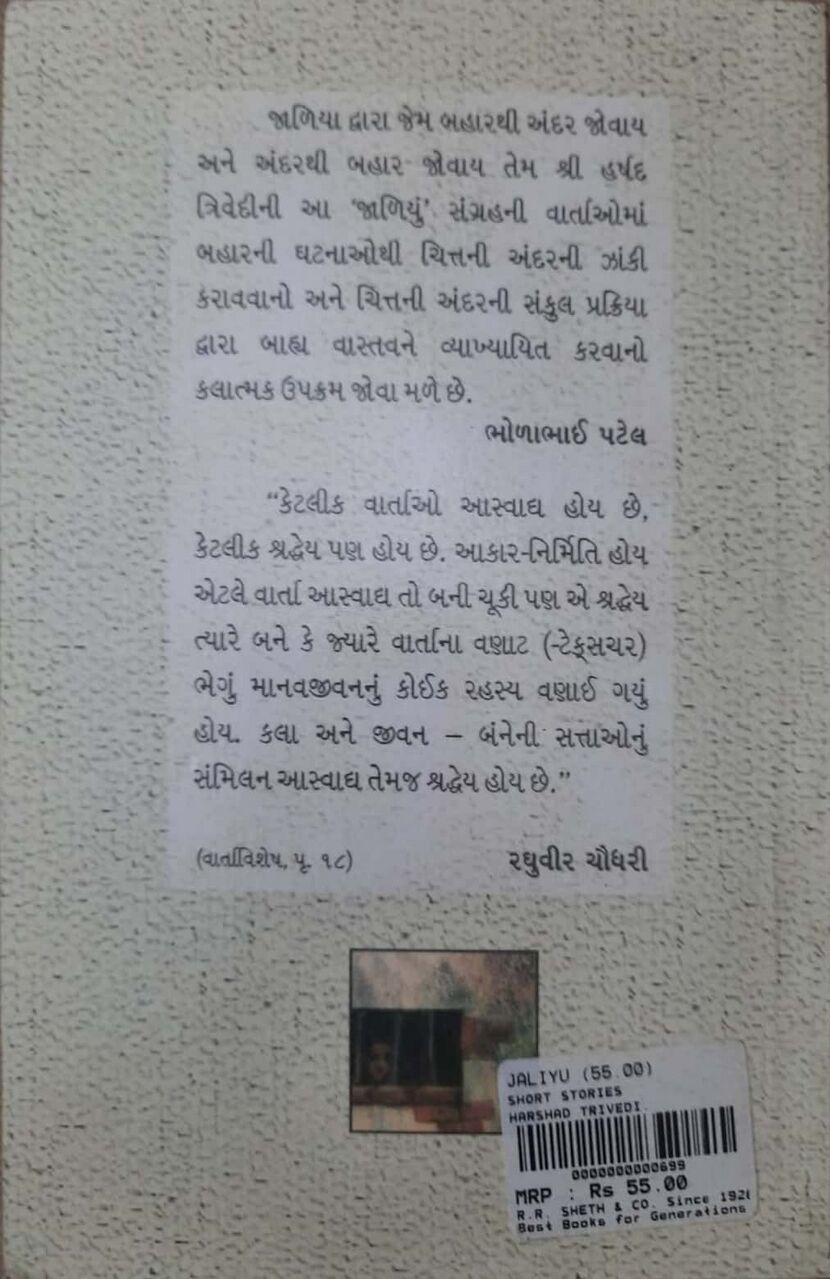 જાળિયા દ્વારા જેમ બહારથી અંદર જોવાય
અને અંદરથી બહાર જોવાય તેમ શ્રી હર્ષદ
ત્રિવેદીની આ ‘જાળિયું’ સંગ્રહની વાર્તાઓમાં
બહારની ઘટનાઓથી ચિત્તની અંદરની ઝાંકી
કરાવવાનો અને ચિત્તની અંદરની સંકુલ પ્રક્રિયા
દ્વારા બાહ્ય વાસ્તવને વ્યાખ્યાયિત કરવાનો
કલાત્મક ઉપક્રમ જોવા મળે છે.
ભોળાભાઈ પટેલ
“કેટલીક વાર્તાઓ આસ્વાદ્ય હોય છે,
કેટલીક શ્રદ્ધેય પણ હોય છે. આકાર-નિર્મિતિ હોય
એટલે વાર્તા આસ્વાદ્ય તો બની ચૂકી પણ એ શ્રદ્ધેય
ત્યારે બને કે જ્યારે વાર્તાના વણાટ (-ટેક્સચર)
ભેગું માનવજીવનનું કોઈક રહસ્ય વણાઈ ગયું
હોય. કલા અને જીવન – બંનેની સત્તાઓનું
સંમિલન આસ્વાદ્ય તેમજ શ્રદ્ધેય હોય છે.”
(વાર્તાવિશેષ, પૃ. ૧૮) રઘુવીર ચૌધરી
JALIYU (55.00)
SHORT STORIES
HARSHAD TRIVEDI.
0000000000699
MRP : Rs 55.00
R.R. SHETH & CO. Since 192
Best Books for Generations